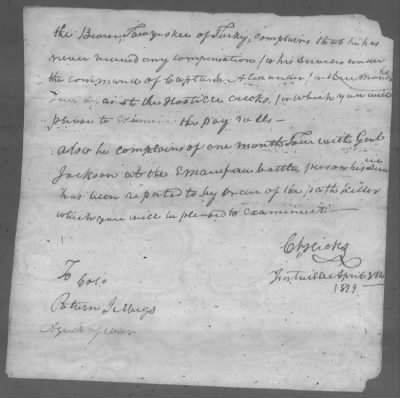 the Bearer, of Turkey, complains that he has
never received any compensation for his services under
the command of Captain Alexander for three months
against the Hostile creeks, for which you will
please to examine the pay rolls —
also he complains of one months Tour with Genl
Jackson at the Emucfau battle, person
has been reported to by order of the path killer
which you will be pleased to examine it —
Ch Hicks
April
1819
To
Colo
Return J Meigs
Agent of War